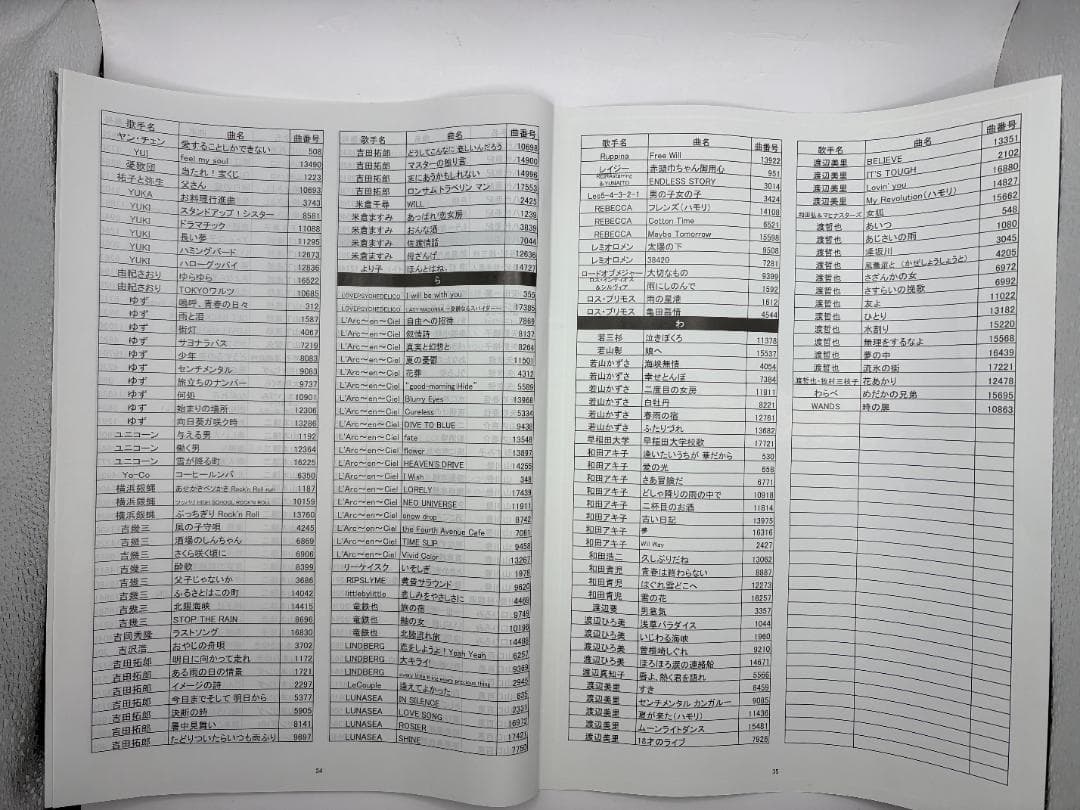 歌手名 曲名 曲番号
ヤン・チェン 愛することしかできない 508
YUI feel my soul 13490
薬敬団 当たれ！宝くじ 1223
祐子と弥生 父さん 10693
YUKA お料理行進曲 3743
YUKI スタンドアップ！シスター 8581
YUKI ドラマチック 11088
YUKI 長い夢 11295
YUKI ハミングバード 12673
YUKI ハローグッバイ 12836
由紀さおり ゆらゆら 16522
由紀さおり TOKYOワルツ 10685
ゆず 嗚呼、青春の日々 312
ゆず 雨と泪 1587
ゆず 街灯 4067
ゆず サヨナラバス 7219
ゆず 少年 8083
ゆず センチメンタル 9083
ゆず 旅立ちのナンバー 9737
ゆず 何処 10901
ゆず 始まりの場所 12306
ゆず 向日葵が咲ク時 13286
ユニコーン 与える男 1192
ユニコーン 働く男 12364
ユニコーン 雪が降る町 16225
Yo-Co コーヒールンバ 6350
横浜銀蝿 あせかきベソかき Rock'n Roll run 1187
横浜銀蝿 ツッパリ HIGH SCHOOL ROCK'N ROLL 10159
横浜銀蝿 ぶっちぎり Rock'n Roll 13760
吉幾三 風の子守唄 4245
吉幾三 酒場のしんちゃん 6869
吉幾三 さくら咲く頃に 6906
吉幾三 酔歌 8399
吉幾三 父子じゃないか 3686
吉幾三 ふるさとはこの町 14042
吉幾三 北限海峡 14415
吉幾三 STOP THE RAIN 8696
吉岡秀隆 ラストソング 16830
吉沢浩 おやじの舟唄 3702
吉田拓郎 明日に向かって走れ 1172
吉田拓郎 ある雨の日の情景 1721
吉田拓郎 イメージの詩 2297
吉田拓郎 今日までそして 明日から 5377
吉田拓郎 決断の時 5905
吉田拓郎 暑中見舞い 8141
吉田拓郎 たどりついたらいつも雨ふり 9697
34
歌手名 曲名 曲番号
吉田拓郎 どうしてこんなに 悲しいんだろう 10698
吉田拓郎 マスターの独り言 14900
吉田拓郎 末にありかもしれない 14996
吉田拓郎 ロンサム トラベリン マン 17553
米倉千尋 WILL 2425
米倉ますみ あっぱれ!恋女房 1239
米倉ますみ おんな酒 3839
米倉ますみ 佐渡情話 7044
米倉ますみ 母ざんげ 12636
より子 ほんとはね. 14727
ら
LOVEPSYCHEDELICO I will be with you 355
LOVEPSYCHEDELICO LADY MADONNA～憂鬱なるスパイダー～ 17385
L'Arc～en～Ciel 自由への招待 7869
L'Arc～en～Ciel 叙情詩 8137
L'Arc～en～Ciel 真実と幻想と 8264
L'Arc～en～Ciel 夏の憂鬱 11501
L'Arc～en～Ciel 花葬 4312
L'Arc～en～Ciel "good-morning Hide" 5509
L'Arc～en～Ciel Blurry Eyes 13966
L'Arc～en～Ciel Cureless 5334
L'Arc～en～Ciel DIVE TO BLUE 9438
L'Arc～en～Ciel fate 13548
L'Arc～en～Ciel flower 13897
L'Arc～en～Ciel HEAVEN'S DRIVE 14255
L'Arc～en～Ciel I Wish 348
L'Arc～en～Ciel LORELY 17439
L'Arc～en～Ciel NEO UNIVERSE 11911
L'Arc～en～Ciel snow drop 8742
L'Arc～en～Ciel the Fourth Avenue Cafe 7061
L'Arc～en～Ciel TIME SLIP 9458
L'Arc～en～Ciel Vivid Color 13267
リーケイスク いそしぎ 1978
RIPSLYME 黄昏サラウンド 9620
littlebylittle 悲しみをやさしさに 4469
竜鉄也 旅の宿 9749
竜鉄也 紬の女 10190
竜鉄也 北陸流れ旅 14499
LINDBERG 恋をしようよ！Yeah Yeah 6257
LINDBERG 大キライ! 9369
LINDBERG every little thing every precious thing 2945
LeCouple 逢えてよかった 835
LUNASEA IN SILENCE 2321
LUNASEA LOVE SONG 16972
LUNASEA ROSIER 17421
LUNASEA SHINE 7750
歌手名 曲名 曲番号
Ruppina Free Will 13922
レイジー 赤頭巾ちゃん御用心 951
& YUNAITO ENDLESS STORY 3014
Leo5-4-3-2-1 男の子女の子 3424
REBECCA フレンズ(ハモリ) 14108
REBECCA Cotton Time 6521
REBECCA Maybe Tomorrow 15598
レミオロメン 太陽の下 9508
レミオロメン 38420 7281
ロードオブメジャー 大切なもの 9399
ロス・インディオス&シルヴィア 雨にしのんで 1592
ロス・プリモス 雨の星港 1612
ロス・プリモス 田無慕情 4544
わ
若三杉 泣きぼくろ 11378
若山彰 娘へ 15537
若山かずさ 海峡無情 4054
若山かずさ 幸せとんぼ 7384
若山かずさ 二度目の女房 11811
若山かずさ 白牡丹 8221
若山かずさ 春雨の宿 12761
若山かずさ ふたりづれ 13682
早稲田大学 早稲田大学校歌 17721
和田アキ子 逢いたいうちが 華だから 530
和田アキ子 愛の光 658
和田アキ子 さあ冒険だ 6771
和田アキ子 どしゃ降りの雨の中で 10918
和田アキ子 二杯目のお酒 11804
和田アキ子 古い日記 13975
和田アキ子 夢 16316
和田アキ子 Will Way 2427
和田浩二 久しぶりだね 13062
和田青児 青春は終わらない 8887
和田青児 はぐれ雪どこへ 12273
和田青児 君の花 16257
渡辺要 男意気 3357
渡辺ひろ美 浅草パラダイス 1044
渡辺ひろ美 いじわる海峡 1960
渡辺ひろ美 曽根崎しぐれ 9210
渡辺ひろ美 ほろほろ涙の連絡船 14671
渡辺真知子 唇よ、熱く君を語れ 5566
渡辺美里 すき 8459
渡辺美里 センチメンタル カンガルー 9085
渡辺美里 夏が来た(ハモリ) 11436
渡辺美里 ムーンライトダンス 15481
渡辺美里 18才のライブ 7928
35
歌手名 曲名 曲番号
渡辺美里 BELIEVE 13351
渡辺美里 IT'S TOUGH 2102
渡辺美里 Lovin' you 16880
渡辺美里 My Revolution(ハモリ) 14827
和田弘&マヒナスターズ 女狐 15662
渡哲也 あいつ 548
渡哲也 あじさいの雨 1080
渡哲也 逢坂川 3045
渡哲也 風蕭蕭と (かぜしょうしょうと) 4205
渡哲也 さざんかの女 6972
渡哲也 さすらいの挽歌 6992
渡哲也 友よ 11022
渡哲也 ひとり 13182
渡哲也 水割り 15220
渡哲也 無理をするなよ 15568
渡哲也 夢の中 16439
渡哲也 流氷の街 17221
渡哲也・牧村三枝子 花あかり 12478
わらべ めだかの兄弟 15695
WANDS 時の扉 10863